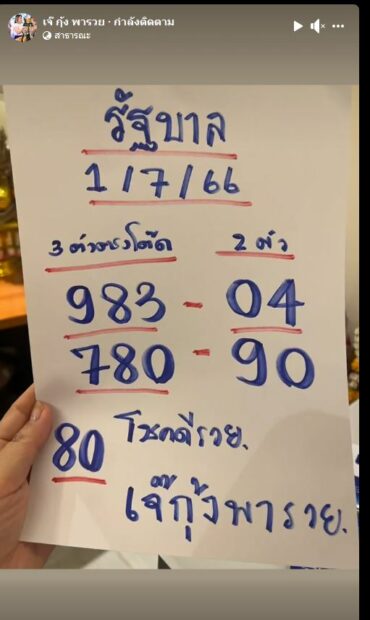 เจ๊ กุ้ง พารวย · กำลังติดตาม
สาธารณะ
รัฐบาล
1/7/66
3 ตัวตรงโต๊ด 2 ตัว
983 - 04
780 - 90
80 โชคดีรวย.
เจ๊กุ้งพารวย.